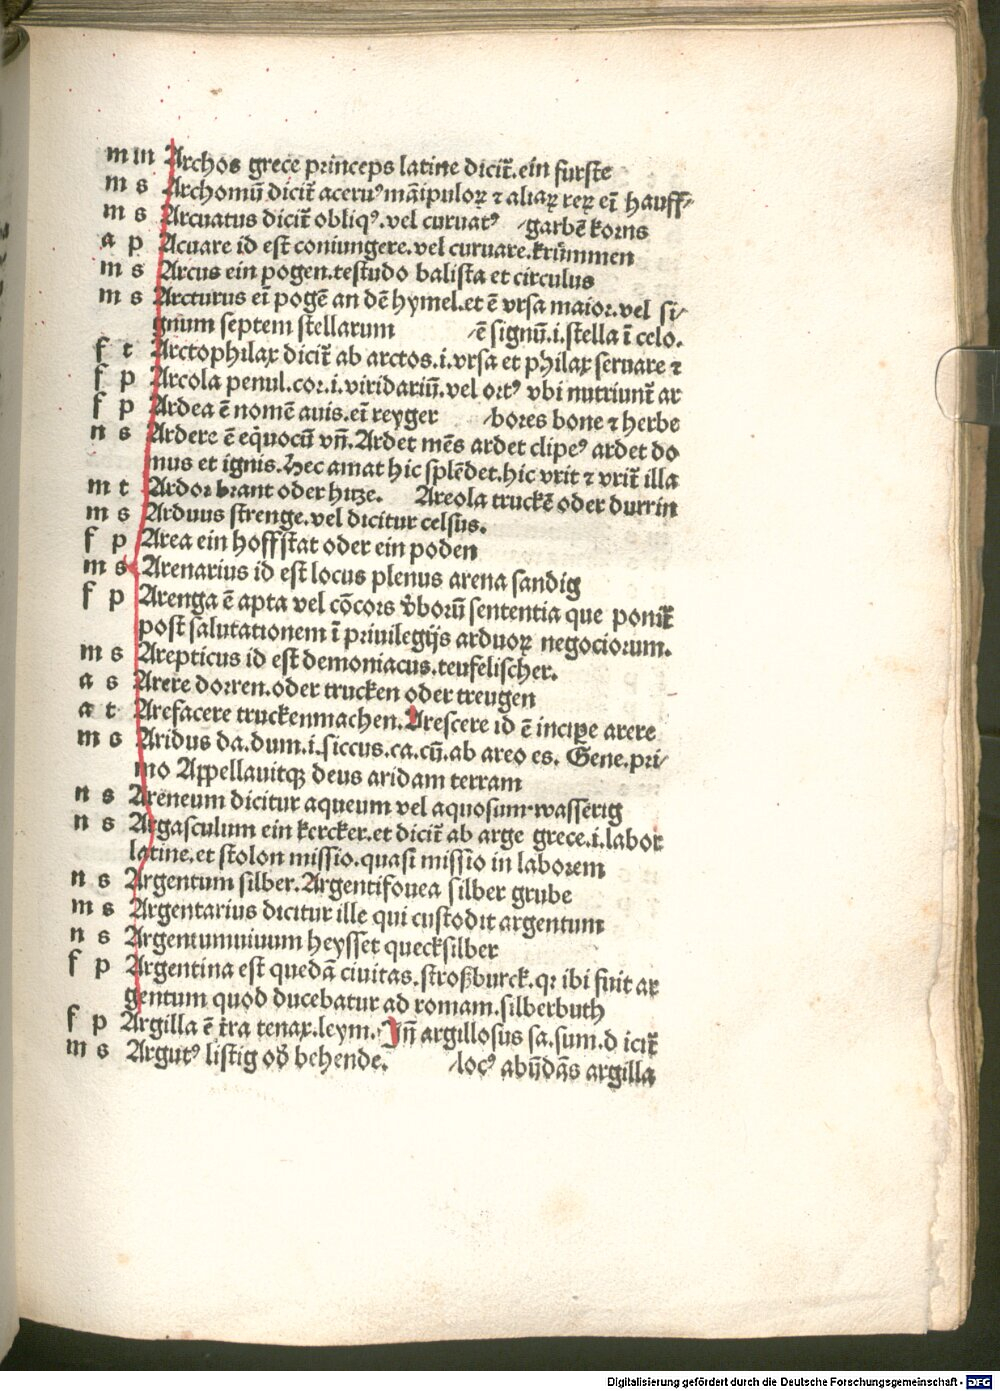 m m Archos grece princeps latine dicit̃.ein furste
m s Archomũ dicit̃ aceruꝰ mãipuloꝝ ⁊ aliaꝝ reꝝ eĩ hauff⸗
m s Arcuatus dicit̃ obliqꝰ.vel curuatꝰ ⸗garbẽ korns
a p Acuare id est coniungere.vel curuare.krümmen
m s Arcus ein pogen.testudo balista et circulus
m s Arcturus eĩ pogẽ an dẽ hymel.et ẽ vrsa maior.vel si⸗
gnum septem stellarum ⸗ẽ signũ.i.stella ĩ celo.
f t Arctophilax dicit̃ ab arctos.i.vrsa et philax seruare ⁊
f p Arcola penul.cor.i.viridariũ.vel ortꝰ vbi nutriunt̃ ar
f p Ardea ẽ nomẽ auis.eĩ reyger ⸗bores bone ⁊ herbe
n s Ardere ẽ eq̃uocũ vñ.Ardet mẽs ardet clipeꝰ ardet do
mus et ignis.Hec amat hic splẽdet.hic vrit ⁊ vrit̃ illa
m t Ardor brant oder hitze. Areola truckẽ oder durrin
m s Arduus strenge.vel dicitur celsus.
f p Area ein hoffstat oder ein poden
m s Arenarius id est locus plenus arena sandig
f p Arenga ẽ apta vel cõcors v̾borũ sententia que ponit̃
post salutationem ĩ priuilegijs arduoꝝ negociorum.
m s Arepticus id est demoniacus.teufelischer.
a s Arere dorren.oder trucken oder treugen
a t Arefacere truckenmachen.Arescere id ẽ incipe arere
m s Aridus da.dum.i.siccus.ca.cũ.ab areo es. Gene.pri⸗
mo Appellauitqꝫ deus aridam terram
n s Areneum dicitur aqueum vel aquosum.wasserig
n s Argasculum ein kercker.et dicit̃ ab arge grece.i.labor
latine.et stolon missio.quasi missio in laborem
n s Argentum silber.Argentifouea silber grube
m s Argentarius dicitur ille qui custodit argentum
n s Argentumuiuum heysset quecksilber
f p Argentina est quedã ciuitas.stroßburck.qꝛ ibi fuit ar
gentum quod ducebatur ad romam.silberbuth
f p Argilla ẽ t̃ra tenax.leym.Jñ argillosus sa.sum.d icit̃
m s Argutꝰ listig od̾ behende. ⸗locꝰ abũdãs argilla
Digitalisierung gefördert durch die Deutsche Forschungsgemeinschaft - DFG